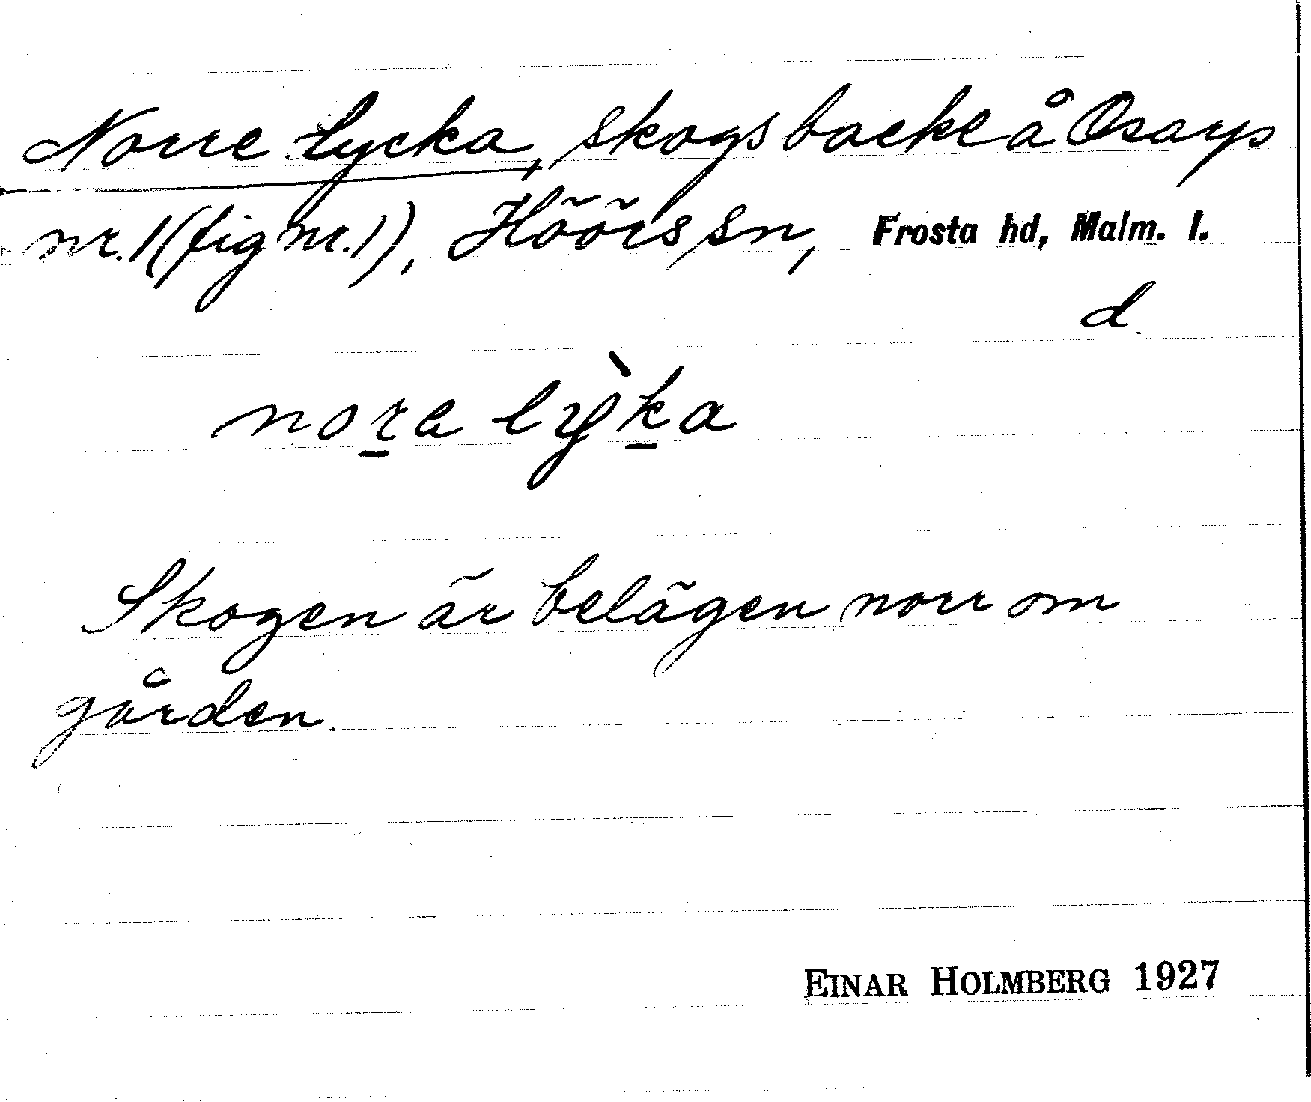 Norre lycka, skogsbacke å Osarp
nr. 1 (fig nr. 1), Höörs sn, Frosta hd, Malm. l.
d
nora lỳka
Skogen är belägen norr om
gården.
EINAR HOLMBERG 1927